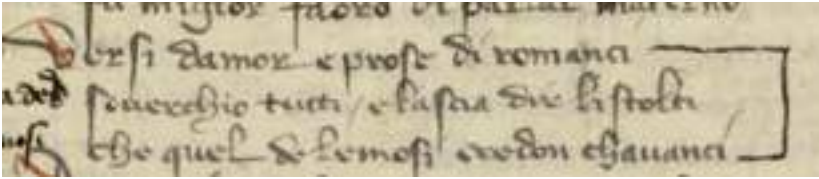 fu miglior fabro di parlar materno
Versi damor e prose di romanci
soverchio tutti / e lascia dir li stolti
che quel de lemosi credon chavanci